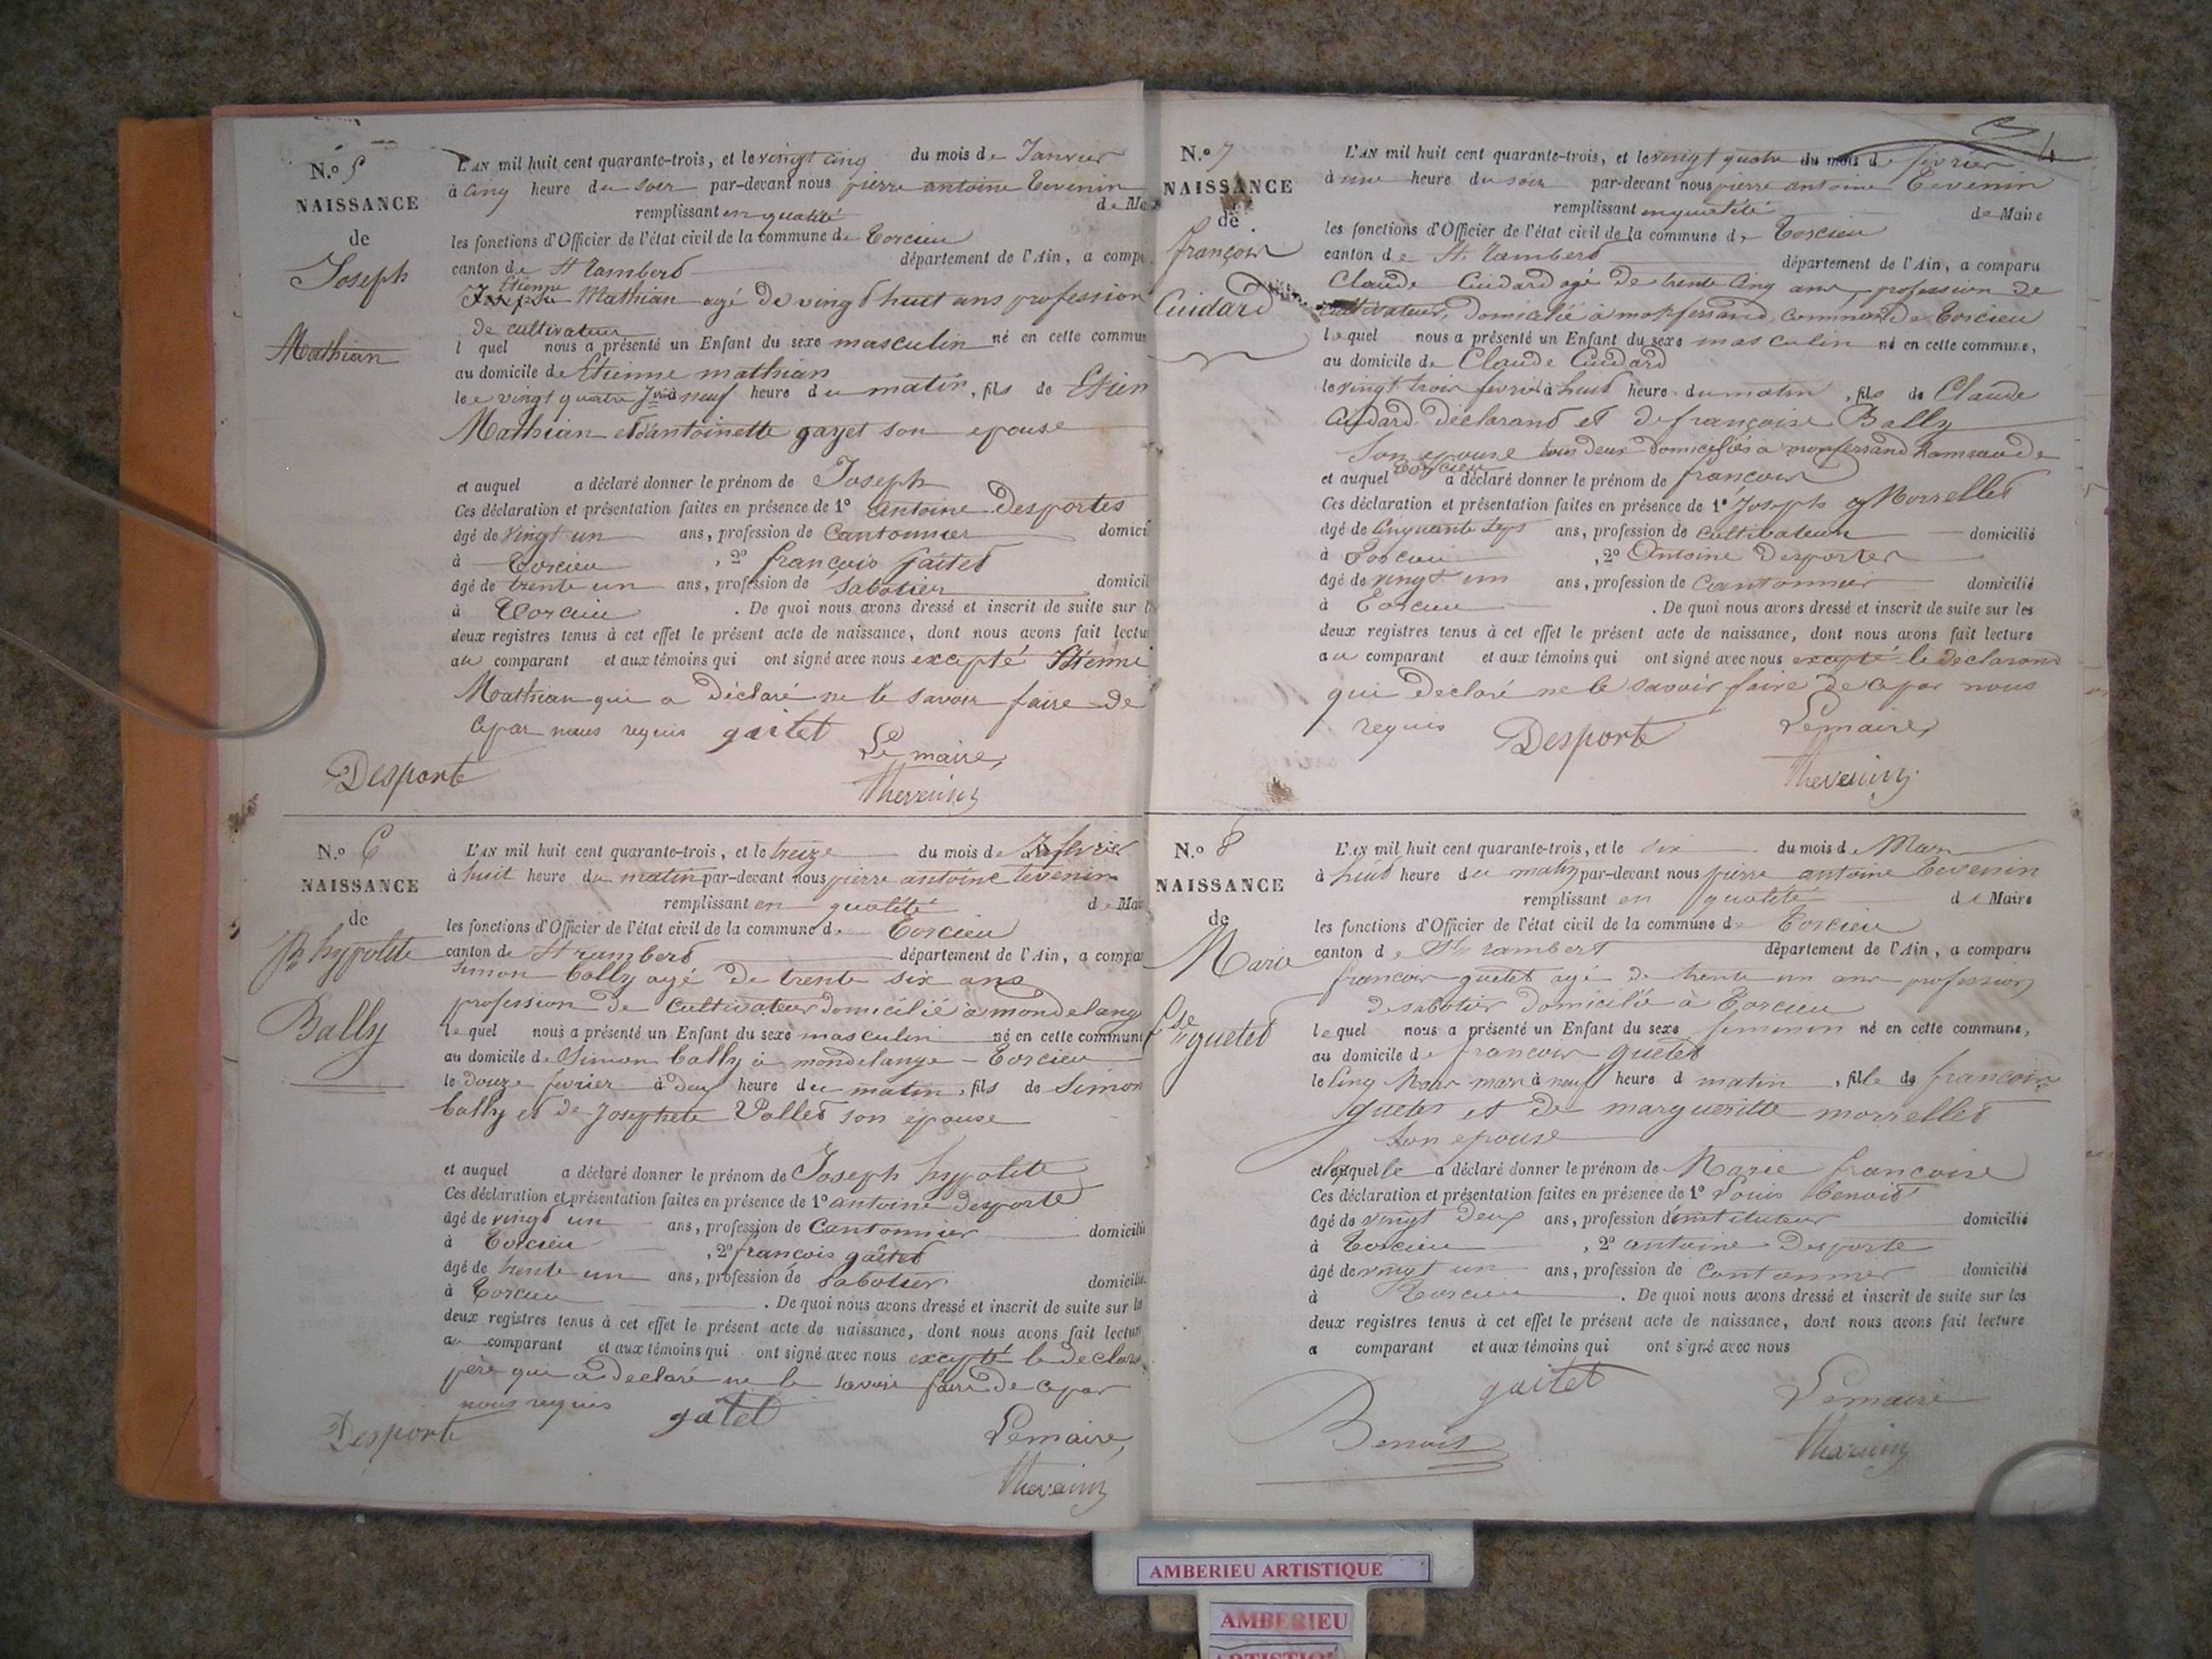 N.o 5
NAISSANCE
de
Joseph
Mathian
L'AN mil huit cent quarante-trois, et le vingt cinq du mois de Janvier
à cinq heure du soir par-devant nous pierre antoine Tevenin
remplissant en qualité de Mai
les fonctions d'Officier de l'état civil de la commune de Torcieu
canton de St Rambert département de l'Ain, a compa
Etienne
Mathian agé de vingt huit ans profession
de cultivateur
l quel nous a présenté un Enfant du sexe masculin né en cette commun
au domicile de Etienne mathian
le vingt quatre à neuf heure du matin, fils de Etien
Mathian et d'antoinette gayet son epouse
et auquel a déclaré donner le prénom de Joseph
Ces déclaration et présentation faites en présence de 1o Antoine Desportes
âgé de vingt un ans, profession de Cantonnier domici
à Torcieu, 2o francois gaitet
âgé de trente un ans, profession de Sabotier domicil
à Torcieu. De quoi nous avons dressé et inscrit de suite sur l
deux registres tenus à cet effet le présent acte de naissance, dont nous avons fait lectu
au comparant et aux témoins qui ont signé avec nous excepté Etienne
Mathian qui a déclaré ne le savoir faire de
ce par nous requis gaitet
Le maire,
Desporte
Thevenin
N.o 6
NAISSANCE
de
Jh hypolite
Bally
L'AN mil huit cent quarante-trois, et le treize du mois de fevrier
à huit heure du matin par-devant nous pierre antoine Tevenin
remplissant en qualité de Mai
les fonctions d'Officier de l'état civil de la commune de Torcieu
canton de St rambert département de l'Ain, a compa
Simon bally agé de trente six ans
profession de Cultivateur domicilié à mondelange
le quel nous a présenté un Enfant du sexe masculin né en cette commun
au domicile de Simon bally à mondelange - Torcieu
le douze fevrier à deux heure du matin, fils de Simon
bally et de Josephete Pollet son epouse
et auquel a déclaré donner le prénom de Joseph hypolite
Ces déclaration et présentation faites en présence de 1o antoine desporte
âgé de vingt un ans, profession de Cantonnier domicili
à Torcieu, 2o francois gaitet
âgé de trente un ans, profession de Sabotier domicilié
à Torcieu. De quoi nous avons dressé et inscrit de suite sur les
deux registres tenus à cet effet le présent acte de naissance, dont nous avons fait lectur
au comparant et aux témoins qui ont signé avec nous excepté le declara
père qui a declaré ne le savoir faire de ce par
nous requis
Desporte gaitet Lemaire,
Thevenin
4
N.o 7
NAISSANCE
de
françois
Cuidard
L'AN mil huit cent quarante-trois, et le vingt quatre du mois de fevrier
à une heure du soir par-devant nous pierre antoine Tevenin
remplissant en qualité de Maire
les fonctions d'Officier de l'état civil de la commune de Torcieu
canton de St Rambert département de l'Ain, a comparu
Claude Cuidard agé de trente cinq ans, profession de
cultivateur, domicilié à montferrand, commune de Torcieu
lequel nous a présenté un Enfant du sexe masculin né en cette commune,
au domicile de Claude Cuidard
le vingt trois fevrier à huit heure du matin, fils de Claude
Cuidard déclarant et de françoise Bally
Son epouse tous deux domiciliés a monferrand hameau de
Torcieu
et auquel a déclaré donner le prénom de francois
Ces déclaration et présentation faites en présence de 1o Joseph Morrellet
âgé de cinquante sept ans, profession de cultivateur domicilié
à Torcieu, 2o Antoine Desportes
âgé de vingt un ans, profession de Cantonnier domicilié
à Torcieu. De quoi nous avons dressé et inscrit de suite sur les
deux registres tenus à cet effet le présent acte de naissance, dont nous avons fait lecture
au comparant et aux témoins qui ont signé avec nous excepté le déclarant
qui declaré ne le savoir faire de ce par nous
requis Desporte Lemaire,
Thevenin
N.o 8
NAISSANCE
de
Marie
fse guetet
L'AN mil huit cent quarante-trois, et le six du mois de Mars
à huit heure du matin par-devant nous pierre antoine Tevenin
remplissant en qualité de Maire
les fonctions d'Officier de l'état civil de la commune de Torcieu
canton de St rambert département de l'Ain, a comparu
francois guetet agé de trente un ans profession
de sabotier domicilié à Torcieu
lequel nous a présenté un Enfant du sexe feminin né en cette commune,
au domicile de francois guetet
le cinq mars à neuf heure d matin, fille de francois
guetet et de margueritte morrellet
Son epouse
et laquelle a déclaré donner le prénom de Marie francoise
Ces déclaration et présentation faites en présence de 1o Louis Benoit
âgé de vingt deux ans, profession d'instituteur domicilié
à Torcieu, 2o antoine desporte
âgé de vingt un ans, profession de Cantonnier domicilié
à Torcieu. De quoi nous avons dressé et inscrit de suite sur les
deux registres tenus à cet effet le présent acte de naissance, dont nous avons fait lecture
a comparant et aux témoins qui ont signé avec nous
gaitet Lemaire
Benoit Thevenin
AMBERIEU ARTISTIQUE
AMBERIEU
ARTISTIQUE